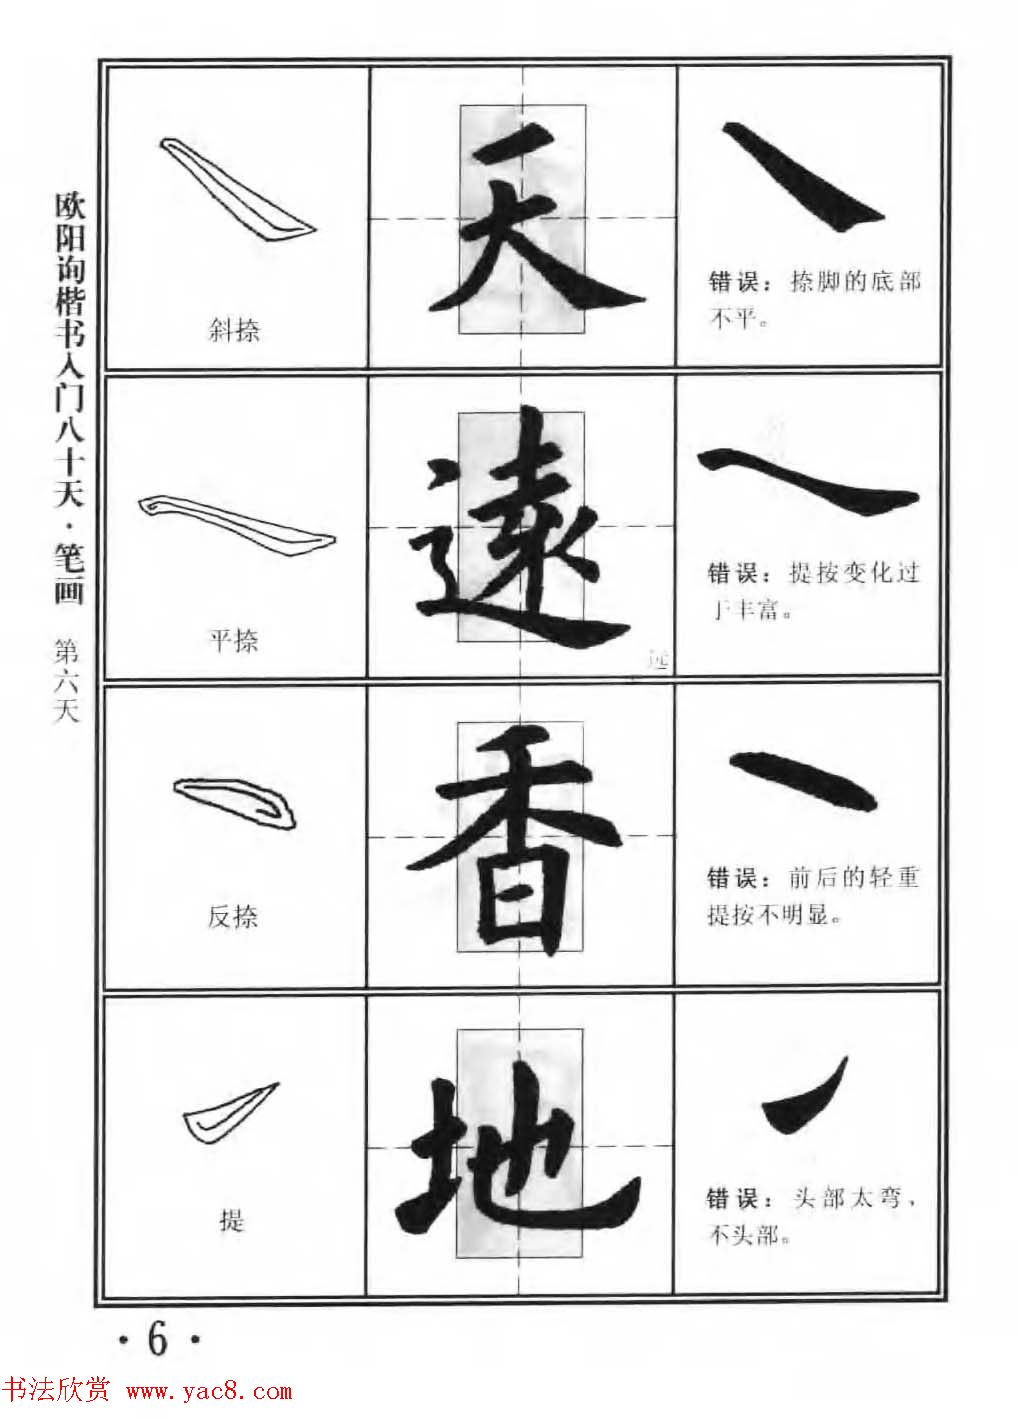 欧阳询楷书入门八十天·笔画 第六天
斜捺
天
错误：捺脚的底部
不平。
平捺
遠
远
错误：提按变化过
于丰富。
反捺
香
错误：前后的轻重
提按不明显。
提
地
错误：头部太弯，
不头部。
·6·
书法欣赏 www.yac8.com